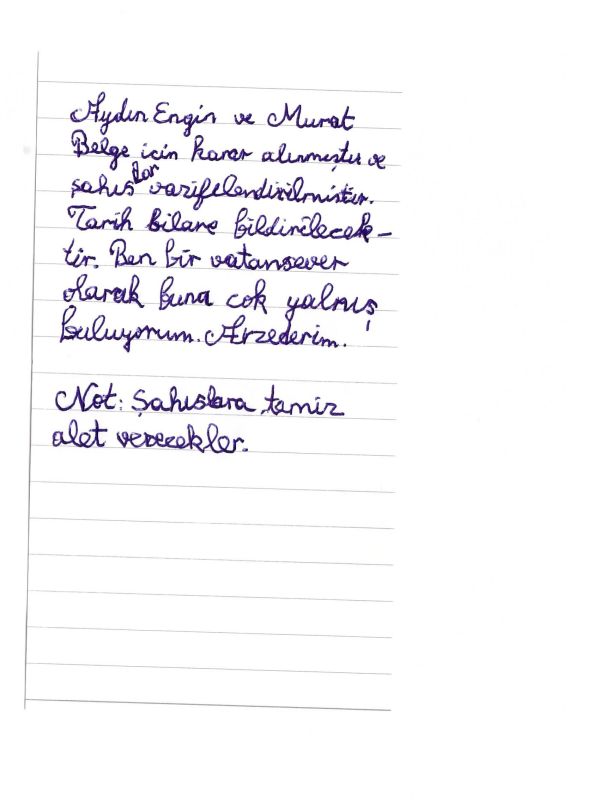 Aydın Engin ve Murat
Belge için karar alınmıştır ve
şahıslar vazifelendirilmiştir.
Tarih bilare bildirilecek-
tir. Ben bir vatansever
olarak buna cok yalnış
buluyorum. Arzederim.
Not: Şahıslara tamiz
alet verecekler.